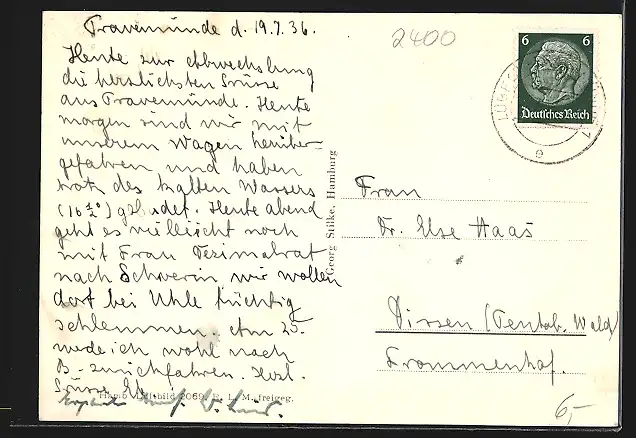 Travemünde d. 19.7.36.
Heute zur Abwechslung
die herzlichsten Grüsse
aus Travemünde. Heute
morgen sind wir mit
unserem Wagen herüber-
gefahren und haben
trotz des kalten Wassers
(16½°) gebadet. Heute abend
geht es vielleicht noch
mit Frau
nach Schwerin wir wollen
dort bei Uhle tüchtig
schlemmen. Am 25.
werde ich wohl nach
B. zurückfahren. Herzl.
Grüsse
2400
6 6
Deutsches Reich
Georg Stilke, Hamburg
Frau
Dr. Else Haas
Dissen (Teutob. Wald)
Frommenhof.
Hamb. Luftbild 2069. R. L. M. freigeg.
6,-